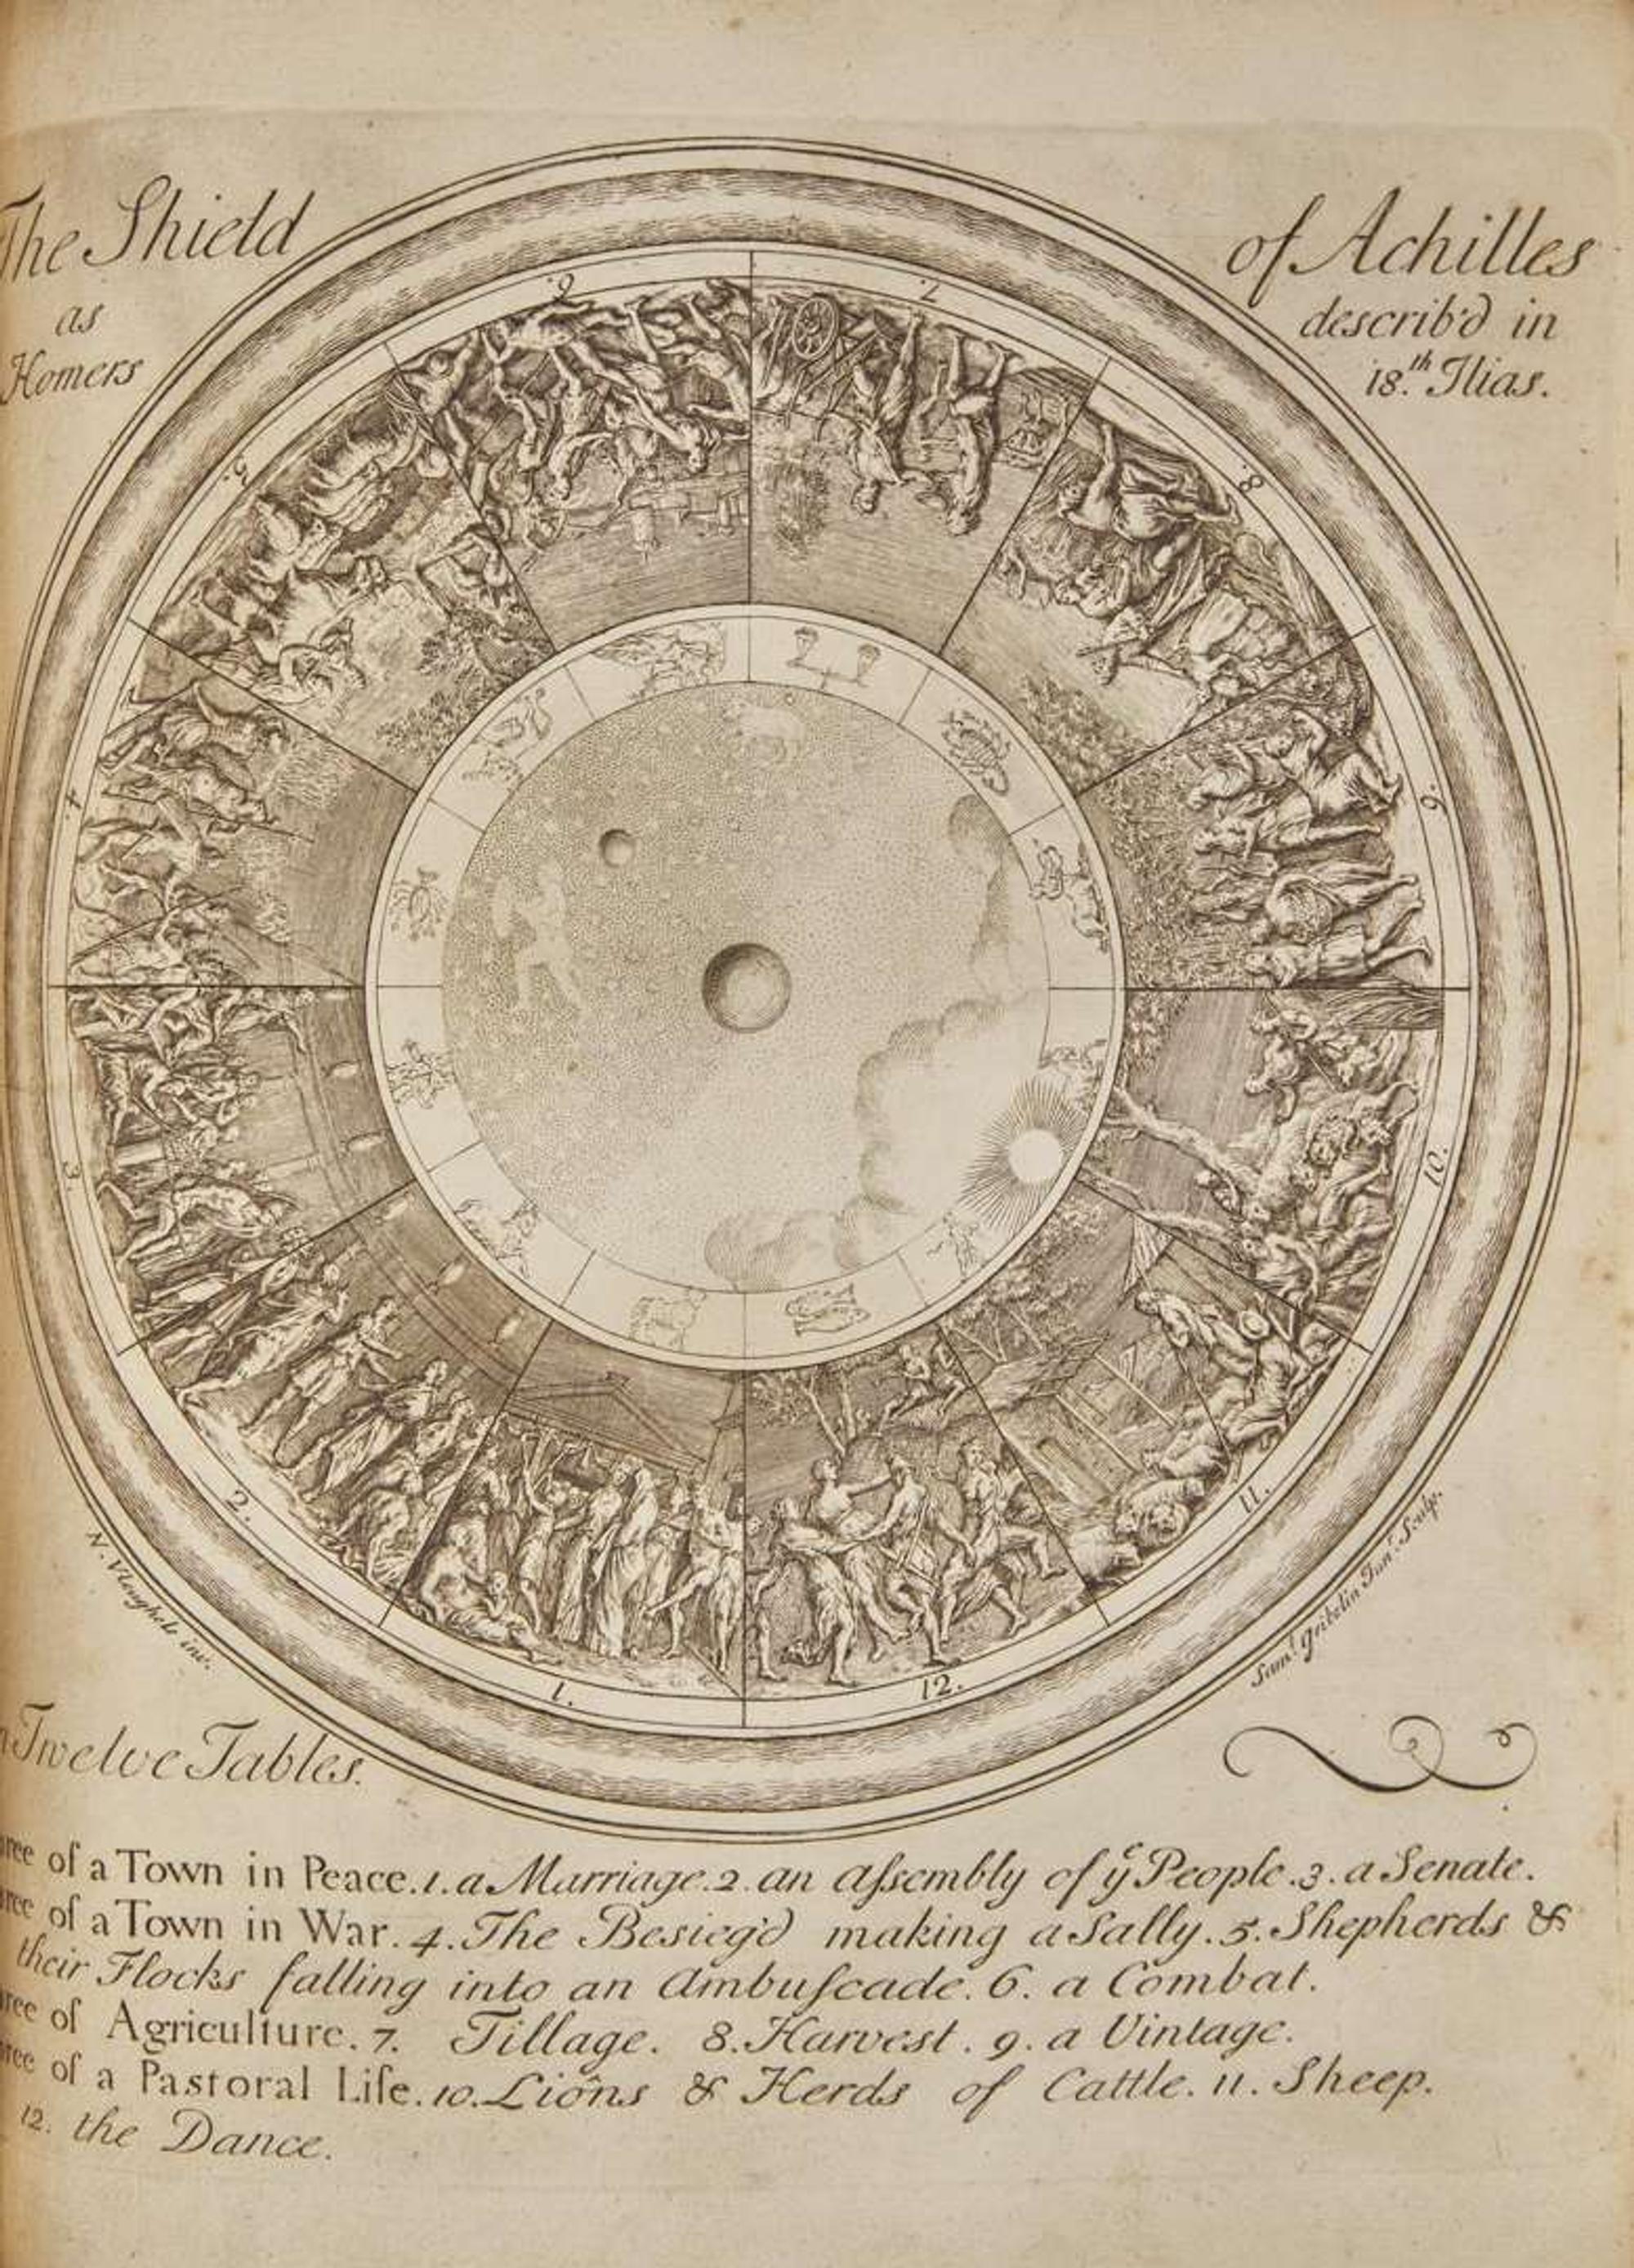 The Shield of Achilles
as describ'd in
Homers 18.th Ilias.
6. 7.
5. 8.
4. 9.
3. 10.
2. 11.
1. 12.
N. Vleughels inv.
Sam.l Gribelin Jun.r Sculp.
Twelve Tables.
of a Town in Peace. 1. a Marriage. 2. an assembly of ye People. 3. a Senate.
of a Town in War. 4. The Besieg'd making a Sally. 5. Shepherds &
their Flocks falling into an Ambuscade. 6. a Combat.
of Agriculture. 7. Tillage. 8. Harvest. 9. a Vintage.
of a Pastoral Life. 10. Lions & Herds of Cattle. 11. Sheep.
12. the Dance.